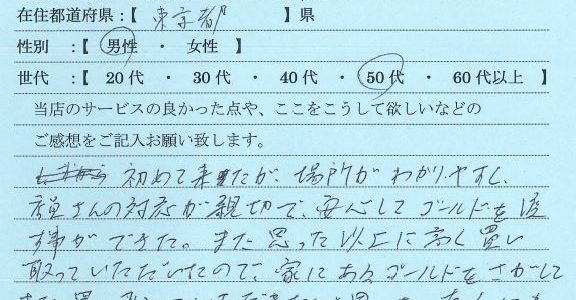 在住都道府県：【 東京都 】県
性別 ：【 男性 ・ 女性 】
世代 ：【 20代 ・ 30代 ・ 40代 ・ 50代 ・ 60代以上 】
当店のサービスの良かった点や、ここをこうして欲しいなどの
ご感想をご記入お願い致します。
初めて来たが、場所がわかりやすく、
店員さんの対応が親切で、安心してゴールドを渡
す事ができた。また思った以上に高く買い
取っていただいたので、家にあるゴールドをさがして